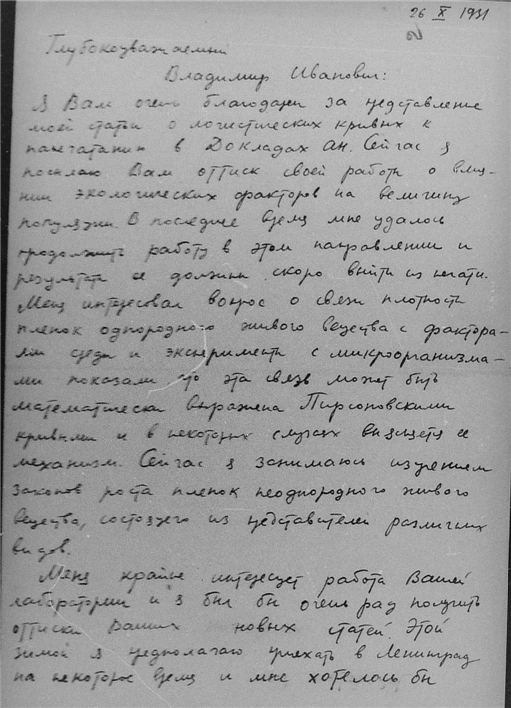 26 X 1931
2
Глубокоуважаемый
Владимир Иванович:
Я Вам очень благодарен за представление
моей статьи о логистических кривых к
напечатанию в Докладах АН. Сейчас я
посылаю Вам оттиск своей работы о влия-
нии экологических факторов на величину
популяции. В последнее время мне удалось
продолжить работу в этом направлении и
результаты ее должны скоро выйти из печати.
Меня интересовал вопрос о связи плотности
пленок однородного живого вещества с фактора-
ми среды и эксперименты с микроорганизма-
ми показали что эта связь может быть
математически выражена Пирсоновскими
кривыми и в некоторых случаях ее
механизм. Сейчас я занимаюсь изучением
законов роста пленок неоднородного живого
вещества, состоящего из представителей различных
видов.
Меня крайне интересует работа Вашей
лаборатории и я был бы очень рад получить
оттиски Ваших новых статей. Этой
зимой я предполагаю приехать в Ленинград
на некоторое время и мне хотелось бы